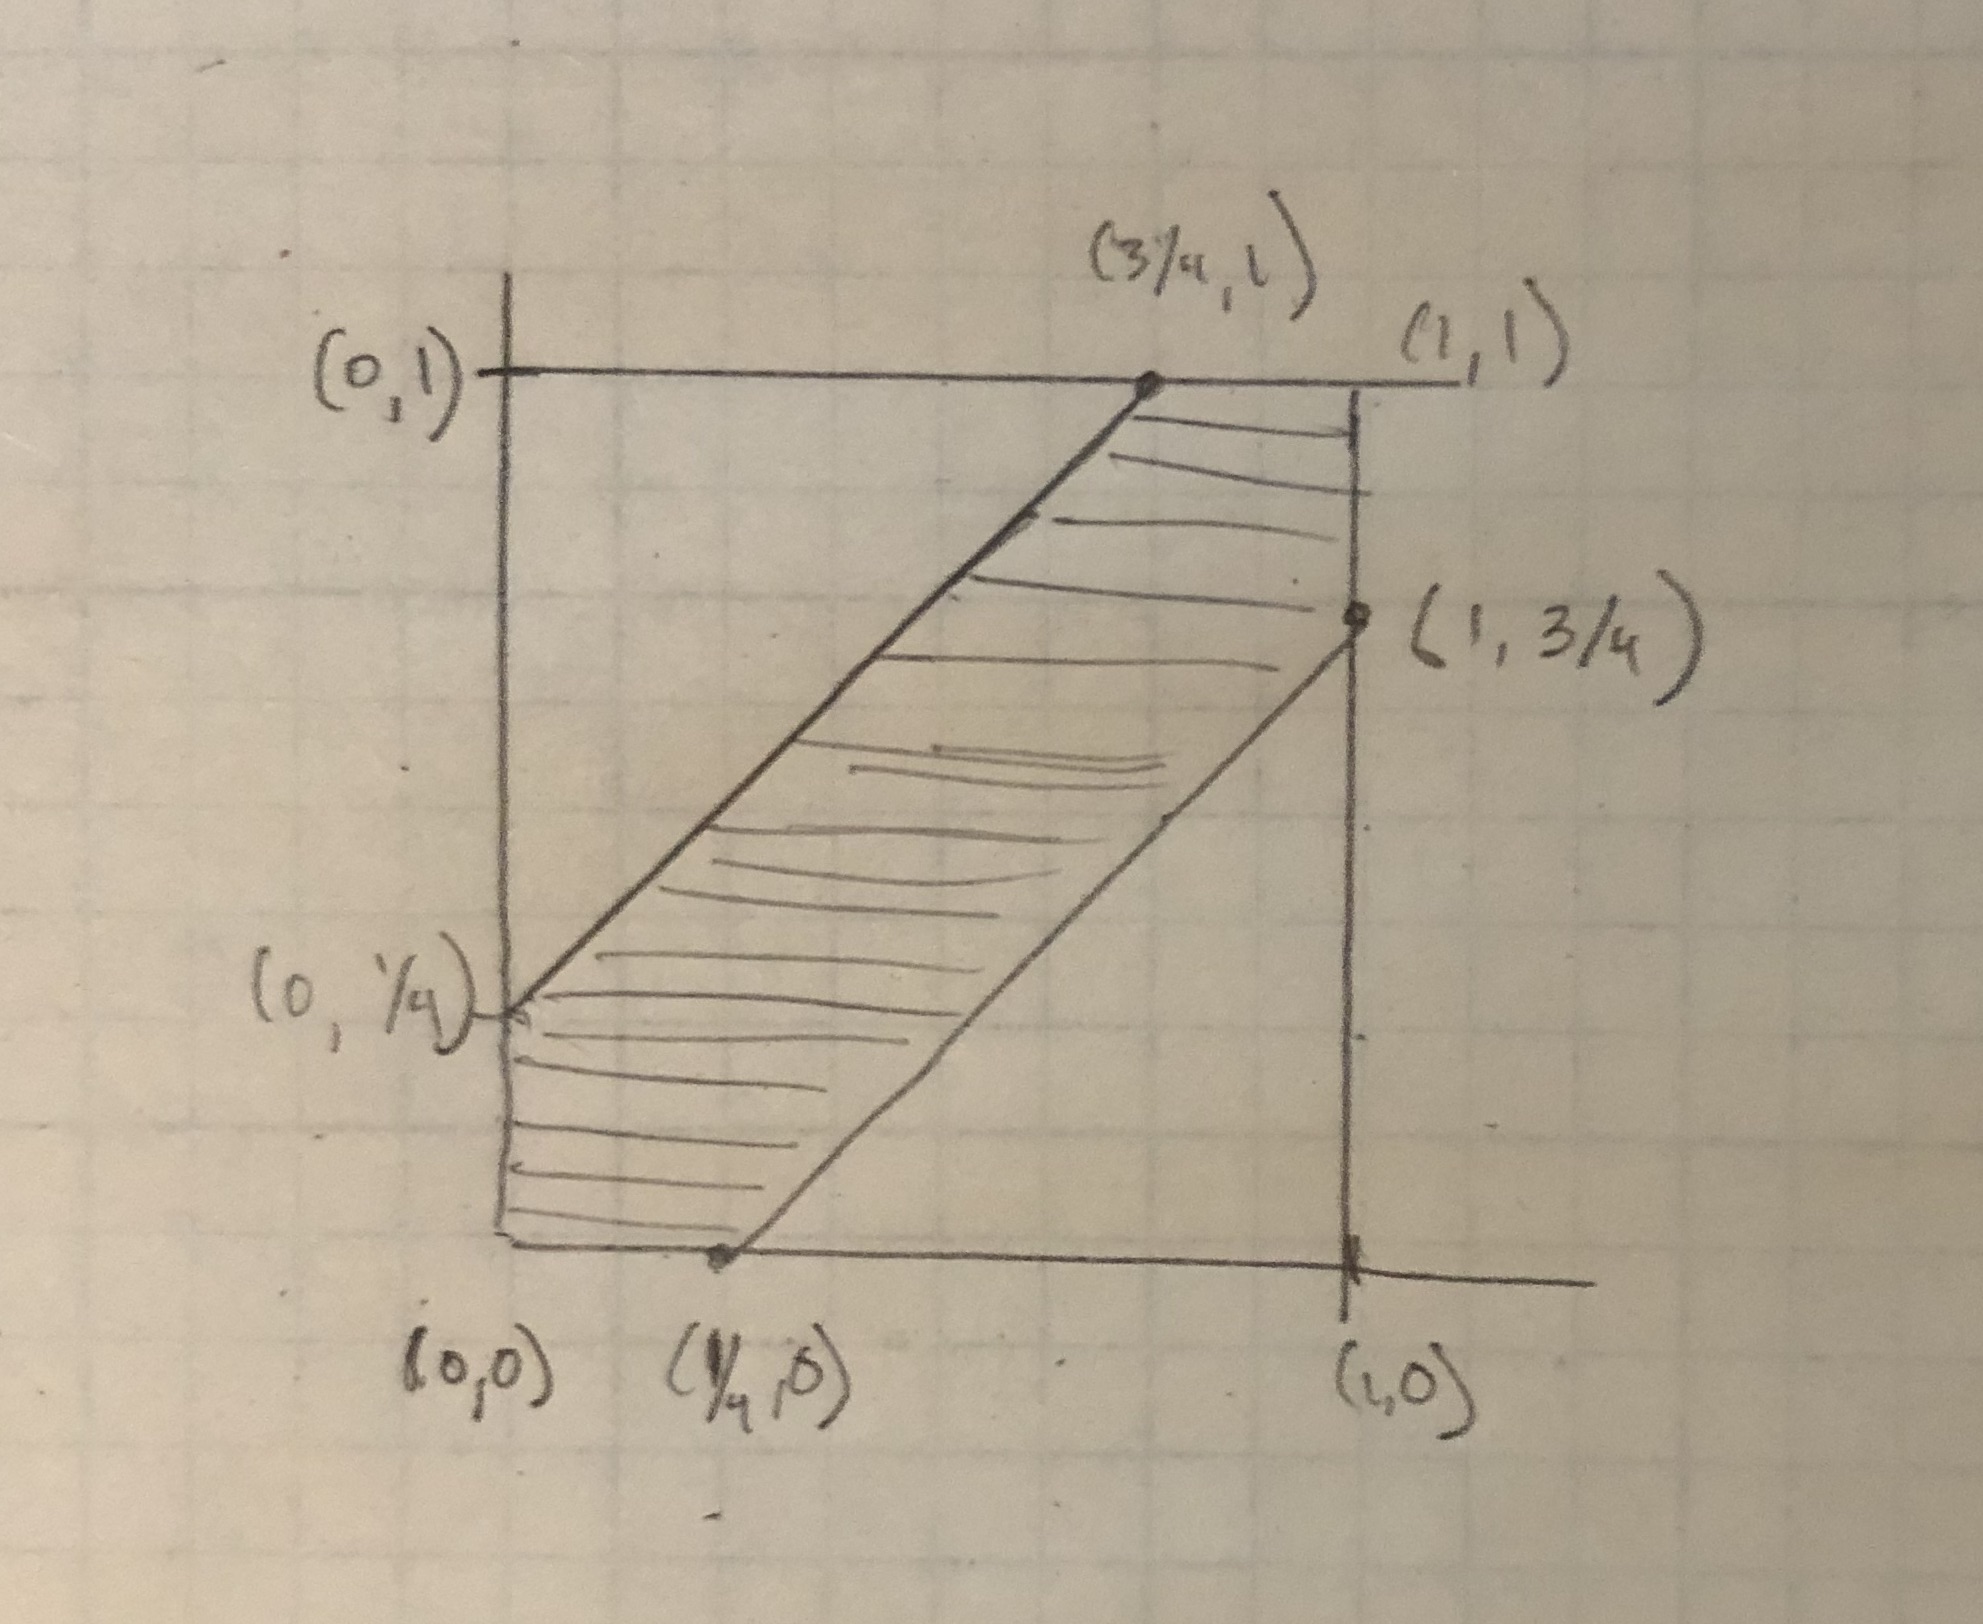 (3/4, 1)
(1, 1)
(0, 1)
(1, 3/4)
(0, 1/4)
(0,0)
(1/4, 0)
(1,0)